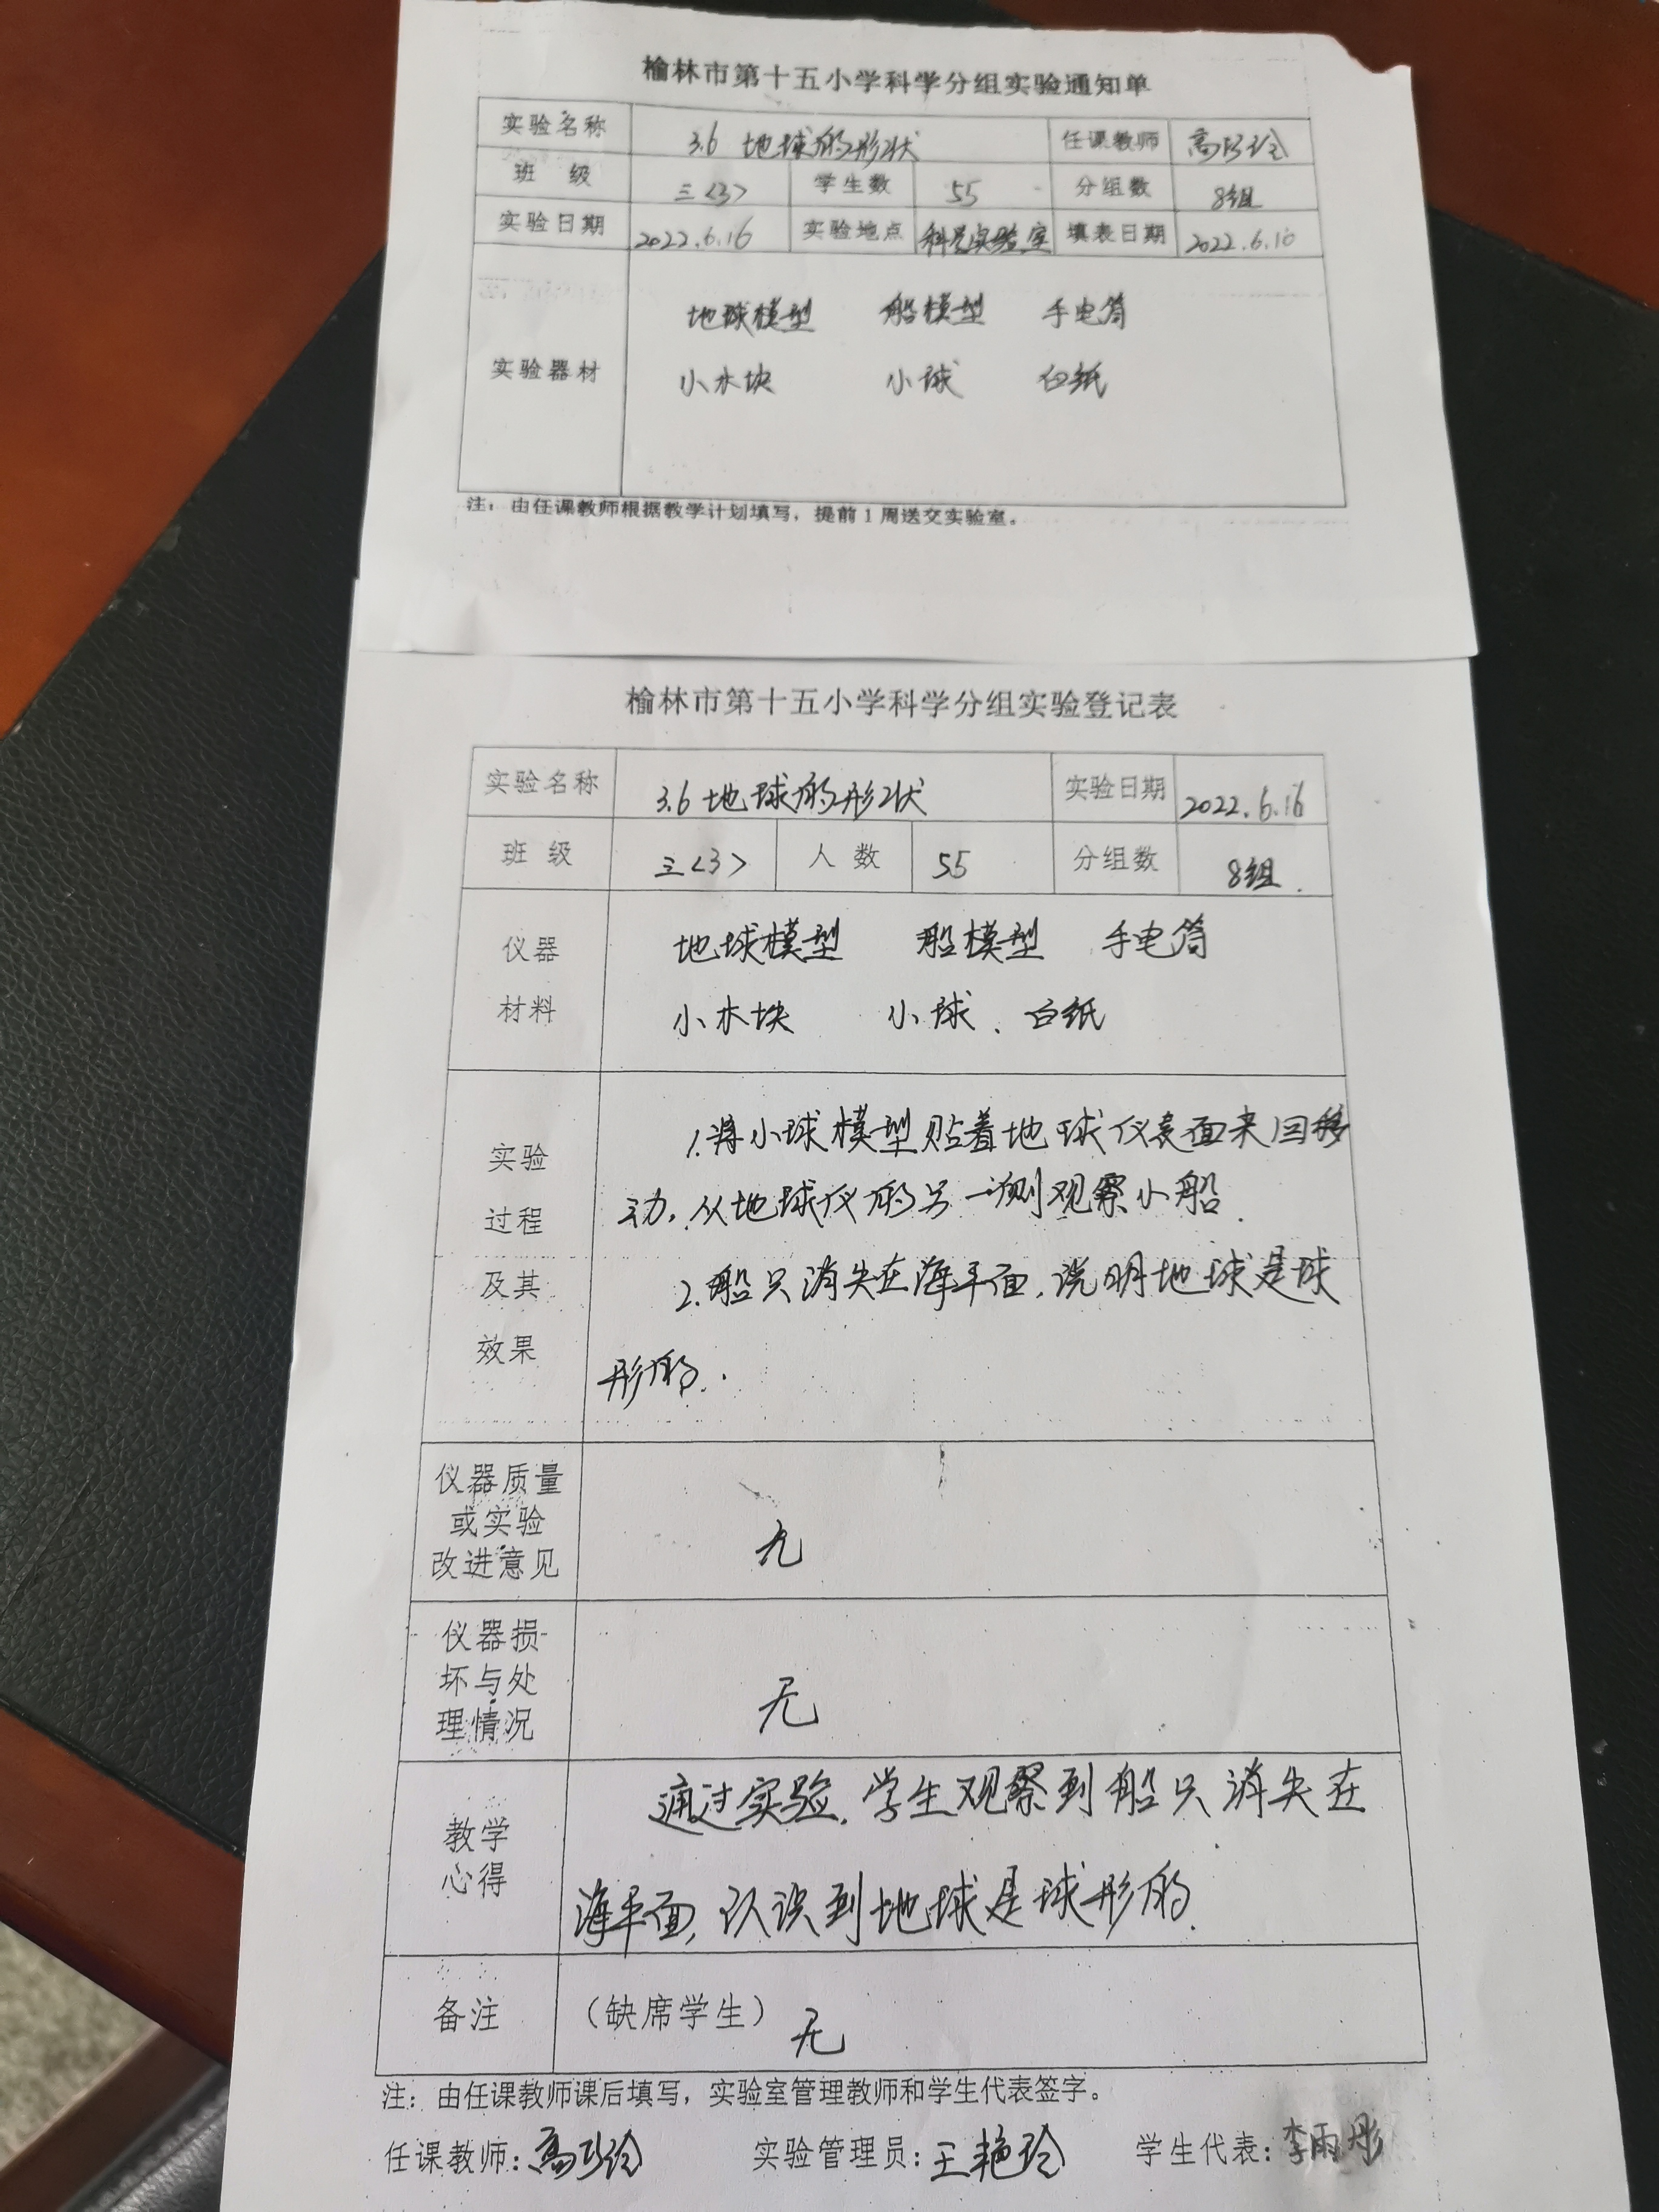 榆林市第十五小学科学分组实验通知单
实验名称 3.6 地球的形状 任课教师 高
班 级 三<3> 学生数 55 分组数 8组
实验日期 2022.6.16 实验地点 科学实验室 填表日期 2022.6.10
地球模型 船模型 手电筒
实验器材 小木块 小球 白纸
注：由任课教师根据教学计划填写，提前1周送交实验室。
榆林市第十五小学科学分组实验登记表
实验名称 3.6 地球的形状 实验日期 2022.6.16
班 级 三<3> 人 数 55 分组数 8组.
仪器 地球模型 船模型 手电筒
材料 小木块 小球、白纸
实验 1.将小球模型贴着地球仪表面来回移
过程 动,从地球仪的另一侧观察小船.
及其 2.船只消失在海平面,说明地球是球
效果 形的.
仪器质量
或实验
改进意见 无
仪器损
坏与处
理情况 无
通过实验,学生观察到船只消失在
教学
心得
海平面,认识到地球是球形的.
备注 （缺席学生） 无
注：由任课教师课后填写，实验室管理教师和学生代表签字。
任课教师：高 实验管理员：王艳玲 学生代表：李雨彤